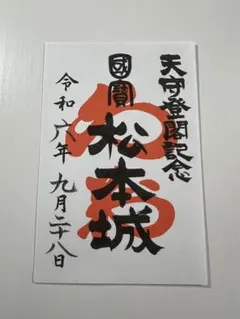 天守登閣記念
國寶
松本城
令和六年九月二十八日